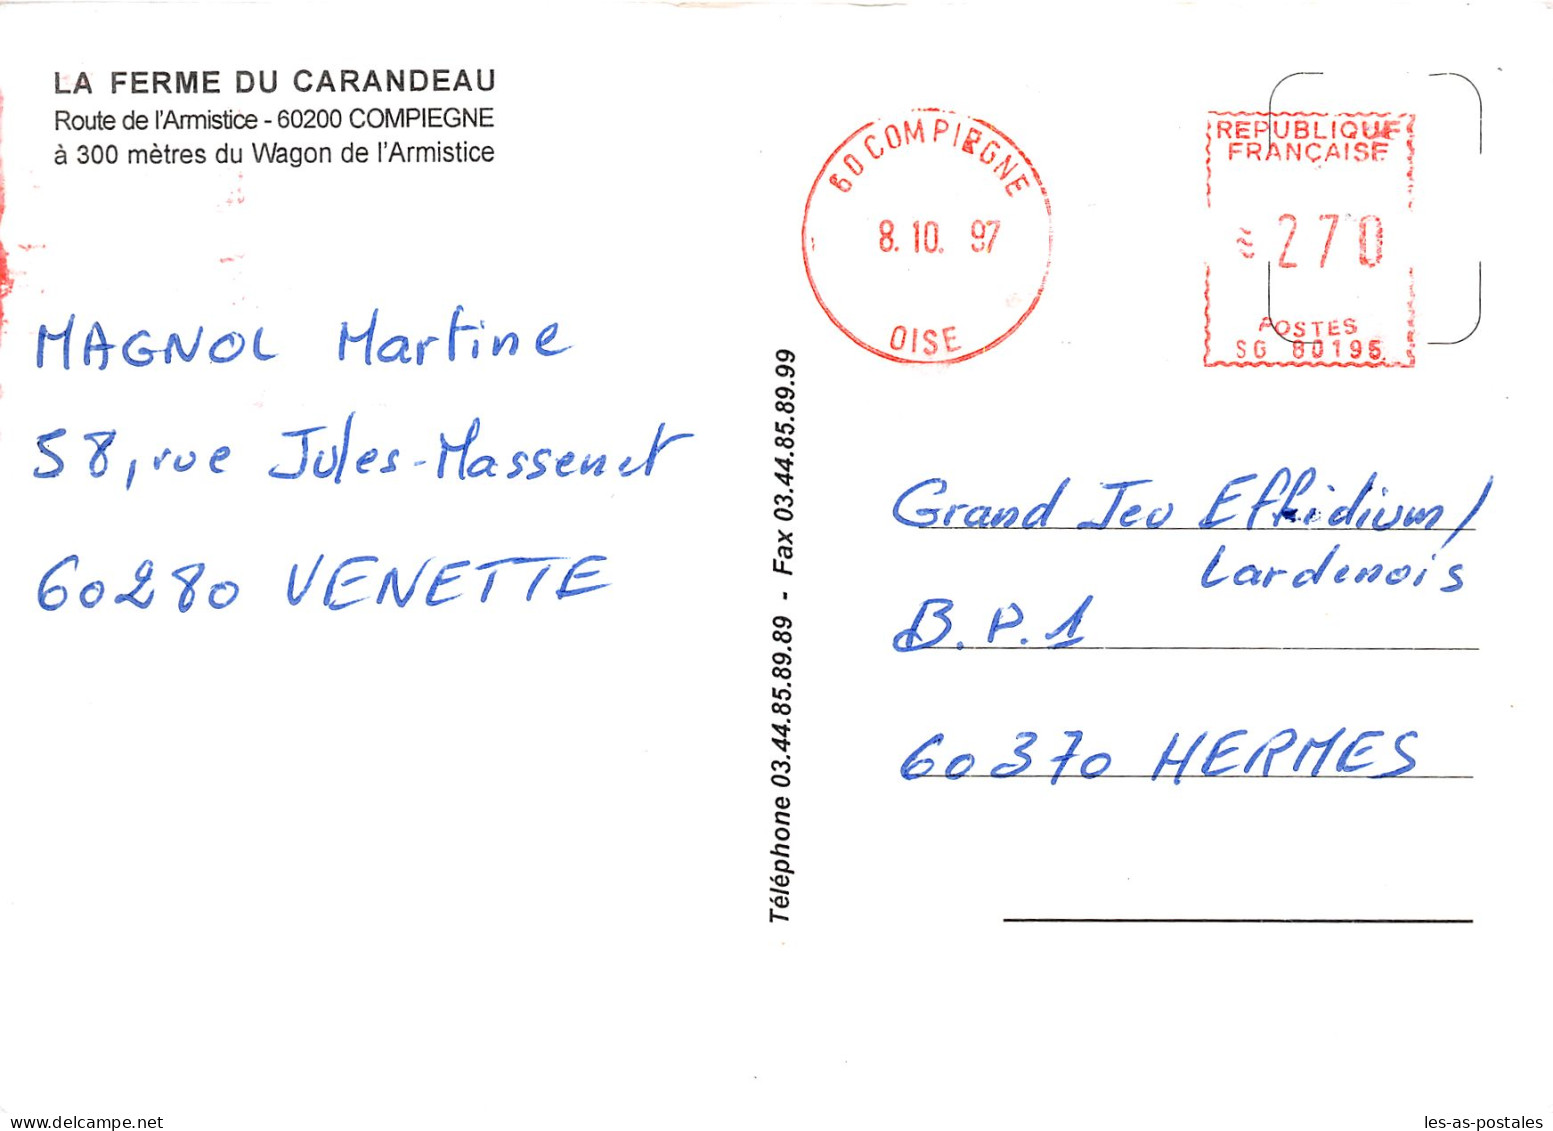 LA FERME DU CARANDEAU
Route de l'Armistice - 60200 COMPIEGNE
à 300 mètres du Wagon de l'Armistice
MAGNOL Martine
58, rue Jules-Massenet
60280 VENETTE
Téléphone 03.44.85.89.89 - Fax 03.44.85.89.99
60 COMPIEGNE
8.10.97
OISE
REPUBLIQUE
FRANÇAISE
270
POSTES
SG 80195
Grand Jeu Effidium/
Lardenois
B.P.1
60370 HERMES
www.delcampe.net
les-as-postales